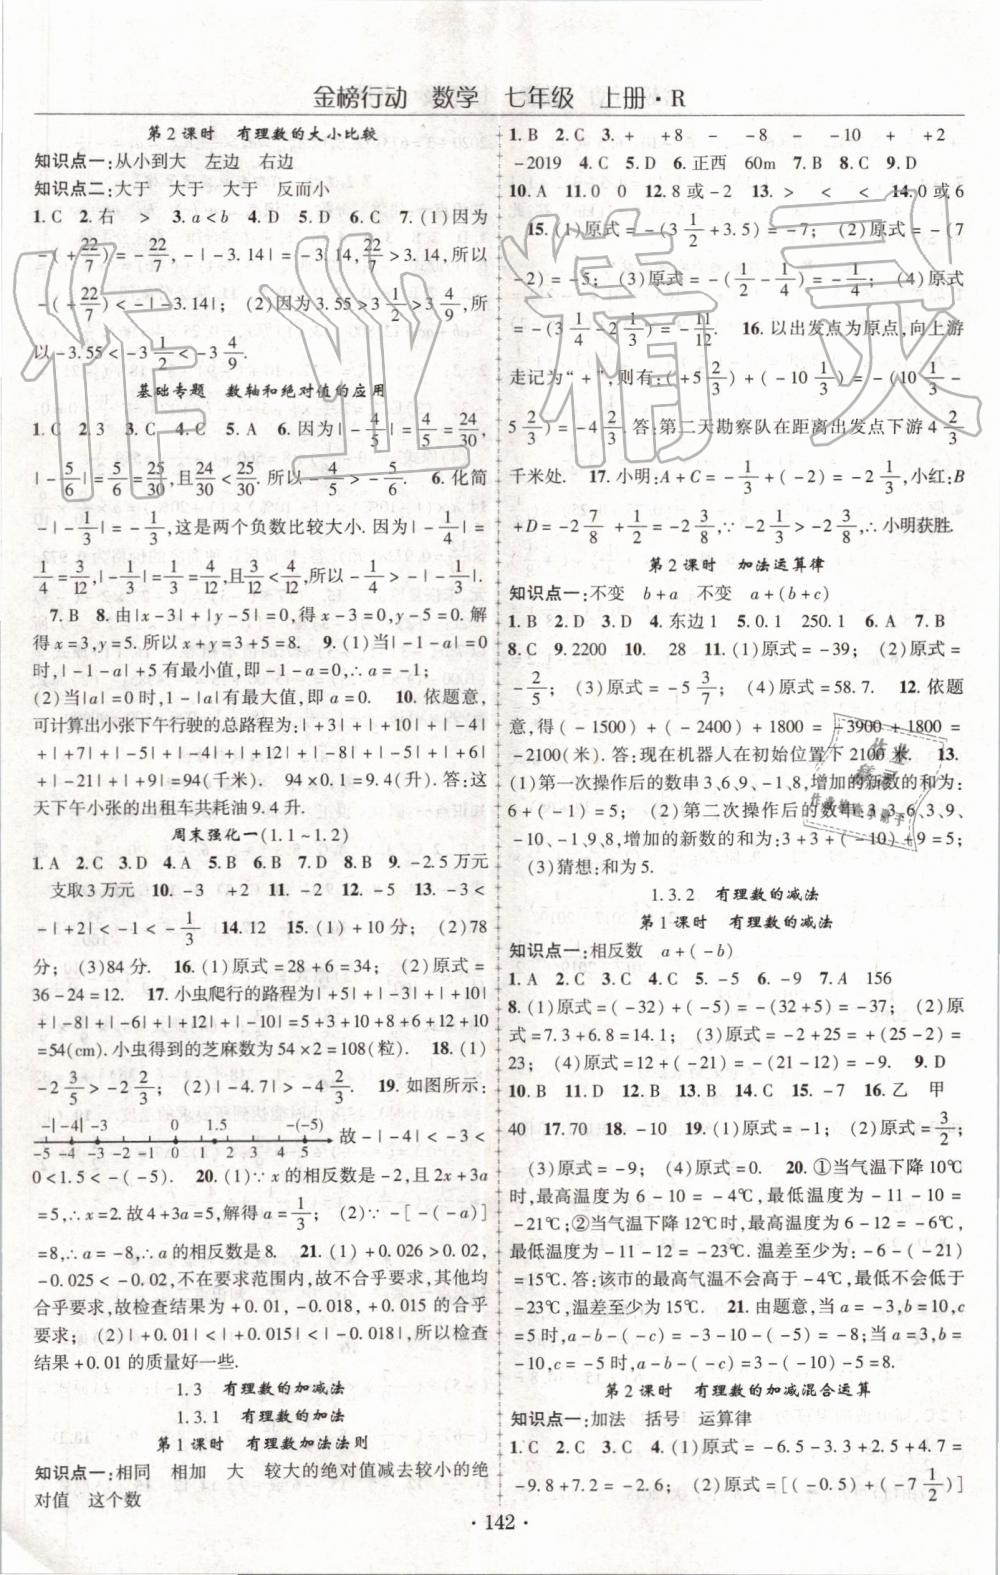 金榜行动 数学 七年级 上册·R
第2课时 有理数的大小比较
知识点一:从小到大 左边 右边
知识点二:大于 大于 大于 反而小
1.C 2.右 > 3.a<b 4.D 5.D 6.C 7.(1)因为
-(+22/7)=-22/7,-|-3.14|=-3.14,22/7>3.14,所以
-(+22/7)<-|-3.14|; (2)因为3.55>3 1/2>3 4/9,所
以-3.55<-3 1/2<-3 4/9.
基础专题 数轴和绝对值的应用
1.C 2.3 3.C 4.C 5.A 6.因为|-4/5|=4/5=24/30,
|-5/6|=5/6=25/30,且24/30<25/30,所以-4/5>-5/6. 6.化简
-|-1/3|=-1/3,这是两个负数比较大小.因为|-1/4|=
1/4=3/12,|-1/3|=1/3=4/12,且3/12<4/12,所以-1/4>-|-1/3|.
7.B 8.由|x-3|+|y-5|=0,得x-3=0,y-5=0.解
得x=3,y=5.所以x+y=3+5=8. 9.(1)当|-1-a|=0
时,|-1-a|+5有最小值,即-1-a=0.∴a=-1;
(2)当|a|=0时,1-|a|有最大值,即a=0. 10.依题意,
可计算出小张下午行驶的总路程为:|+3|+|+10|+|-4|
+|+7|+|-5|+|-4|+|-10|+|-5|+|-5|+|+6|
+|-21|+|+9|=94(千米). 94×0.1=9.4(升).答:这
天下午小张的出租车共耗油9.4升.
周末强化一(1.1~1.2)
1.A 2.C 3.D 4.A 5.B 6.B 7.D 8.B 9.-2.5万元
支取3万元 10.-3 +2 11.-2 12.-5 13.-3<
-|+2|<-1<-1/3 14.12 15.(1)+10分; (2)78
分; (3)84分. 16.(1)原式=28+6=34; (2)原式=
36-24=12. 17.小虫爬行的路程为|+5|+|-3|+|+10|
+|-8|+|-6|+|+12|+|-10|=5+3+10+8+6+12+10
=54(cm).小虫得到的芝麻数为54×2=108(粒). 18.(1)
-2 3/5>-2 2/3; (2)|-4.7|>-4 2/3. 19.如图所示:
-|-4| -3 0 1.5 -(-5)
-5 -4 -3 -2 -1 0 1 2 3 4 5 故-|-4|<-3<
0<1.5<-(-5). 20.(1)∵x的相反数是-2,且2x+3a
=5,∴x=2.故4+3a=5,解得a=1/3; (2)∵-[-(-a)]
=8,∴a=-8,∴a的相反数是8. 21.(1)+0.026>0.02,
-0.025<-0.02,不在要求范围内,故不合乎要求,其他均
合乎要求,故检查结果为+0.01,-0.018,+0.015的合乎
要求; (2)|+0.01|<|+0.015|<|-0.018|,所以检查
结果+0.01的质量好一些.
1.3 有理数的加减法
1.3.1 有理数的加法
第1课时 有理数加法法则
知识点一:相同 相加 大 较大的绝对值减去较小的绝
对值 这个数
1.B 2.C 3.+ +8 - -8 - -10 + +2
-2019 4.C 5.D 6.正西 60m 7.B 8.C 9.D
10.A 11.0 0 12.8或-2 13.> < < < 14.0或6
15.(1)原式=-(3 1/2+3.5)=-7; (2)原式=-(7
-2)=-5; (3)原式=-(1/2-1/4)=-1/4; (4)原式
=-(3 1/4-2 1/3)=-11/12. 16.以出发点为原点,向上游
走记为“+”,则有:(+5 2/3)+(-10 1/3)=-(10 1/3-
5 2/3)=-4 2/3.答:第二天勘察队在距离出发点下游4 2/3
千米处. 17.小明:A+C=-1/3+(-2)=-2 1/3,小红:B
+D=-2 7/8+1/2=-2 3/8,∵-2 1/3>-2 3/8,∴小明获胜.
第2课时 加法运算律
知识点一:不变 b+a 不变 a+(b+c)
1.B 2.D 3.D 4.东边1 5.0.1 250.1 6.A 7.B
8.C 9.2200 10. 28 11.(1)原式=-39; (2)原式=
-2/5; (3)原式=-5 3/7; (4)原式=58.7. 12.依题
意,得(-1500)+(-2400)+1800=-3900+1800=
-2100(米).答:现在机器人在初始位置下2100米. 13.
(1)第一次操作后的数串3,6,9,-1,8,增加的新数的和为:
6+(-1)=5; (2)第二次操作后的数串:3,3,6,3,9,
-10,-1,9,8,增加的新数的和为:3+3+(-10)+9=5;
(3)猜想:和为5.
1.3.2 有理数的减法
第1课时 有理数的减法
知识点一:相反数 a+(-b)
1.A 2.C 3.C 4.C 5.-5 6.-9 7.A 156
8.(1)原式=(-32)+(-5)=-(32+5)=-37; (2)原
式=7.3+6.8=14.1; (3)原式=-2+25=+(25-2)=
23; (4)原式=12+(-21)=-(21-12)=-9. 9.D
10.B 11.D 12.B 13.B 14.A 15.-7 16.乙 甲
40 17.70 18.-10 19.(1)原式=-1; (2)原式=3/2;
(3)原式=-9; (4)原式=5. 20.①当气温下降10℃
时,最高温度为6-10=-4℃,最低温度为-11-10=
-21℃;②当气温下降12℃时,最高温度为6-12=-6℃,
最低温度为-11-12=-23℃.温差至少为:-6-(-21)
=15℃.答:该市的最高气温不会高于-4℃,最低气温不低
于-23℃,温差至少为15℃. 21.由题意,当a=-3,b=10,c
=5时,a-b-(-c)=-3-10-(-5)=-8;当a=3,b=
-10,c=-5时,a-b-(-c)=3-(-10)-5=8.
第2课时 有理数的加减混合运算
知识点一:加法 括号 运算律
1.C 2.C 3.A 4.C 5.(1)原式=-6.5-3.3+2.5+4.7=
-9.8+7.2=-2.6; (2)原式=[(+4 1/2)+(-7 1/2)]
·142·
作业精灵